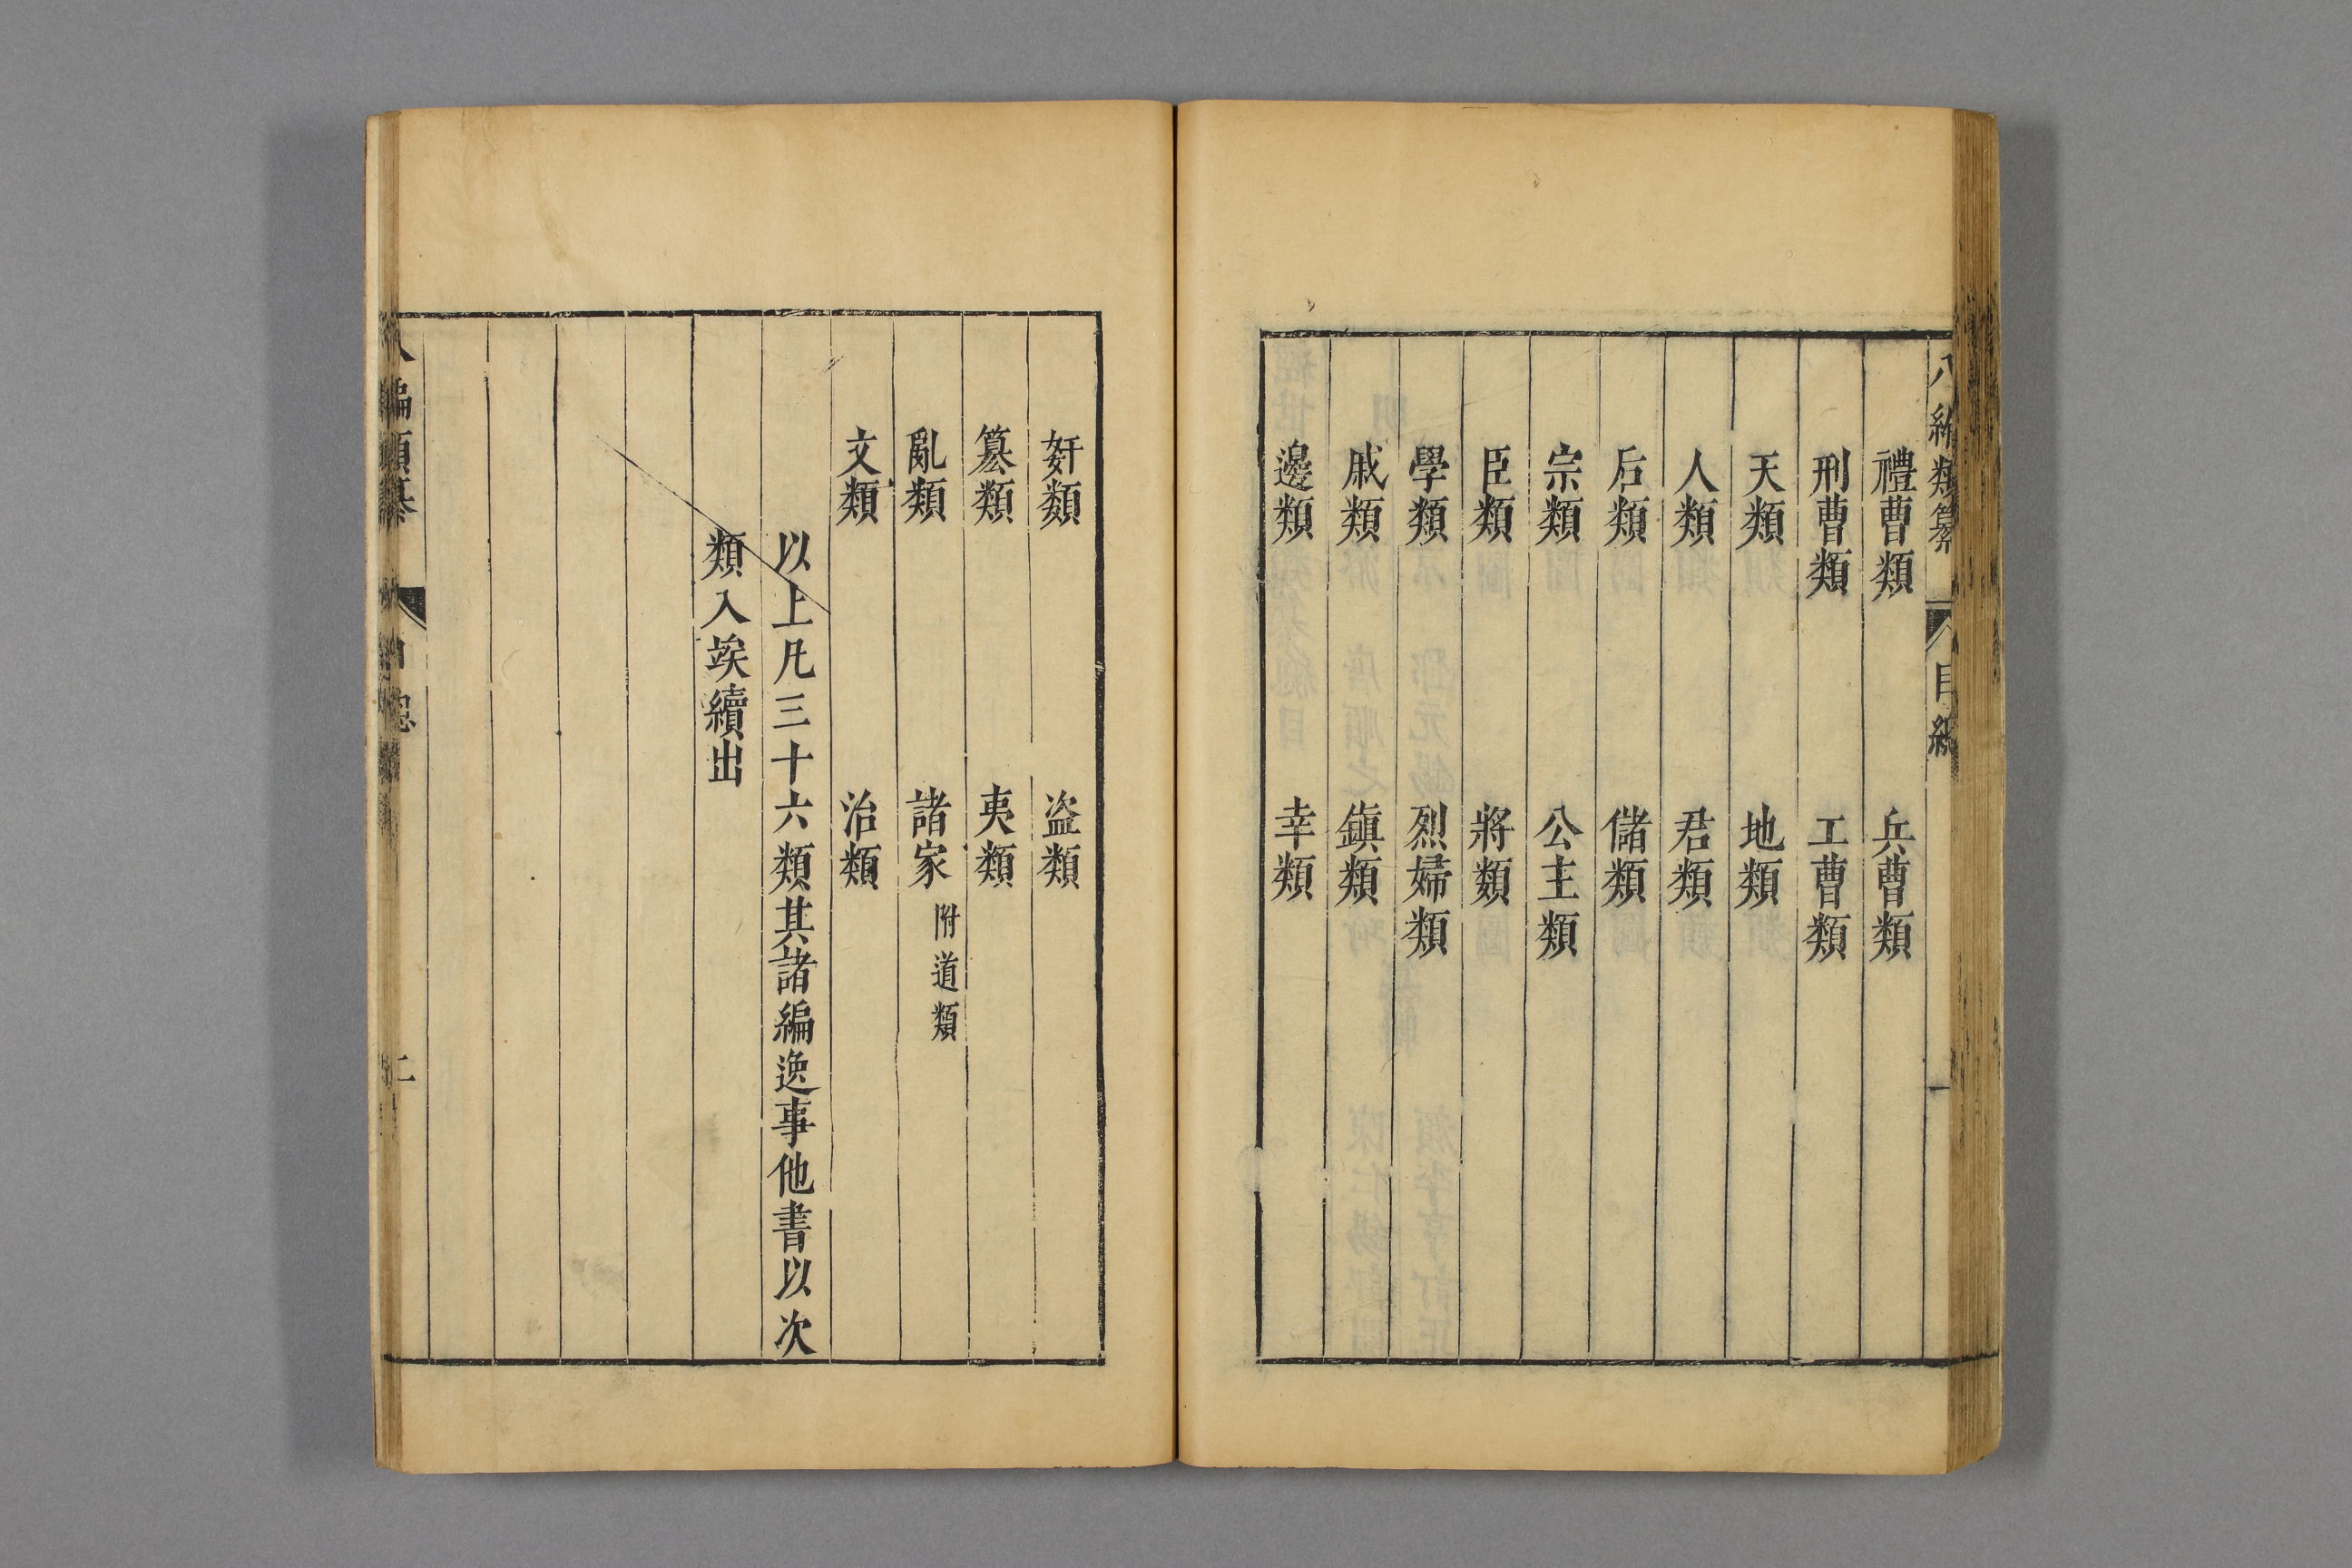 八編類纂 目總 一
禮曹類 兵曹類
刑曹類 工曹類
天類 地類
人類 君類
后類 儲類
宗類 公主類
臣類 將類
學類 烈婦類
戚類 鎭類
邊類 幸類
奸類 盜類
簒類 夷類
亂類 諸家 附道類
文類 治類
以上凡三十六類其諸編逸事他書以次
類入竢續出
八編類纂 目總 二